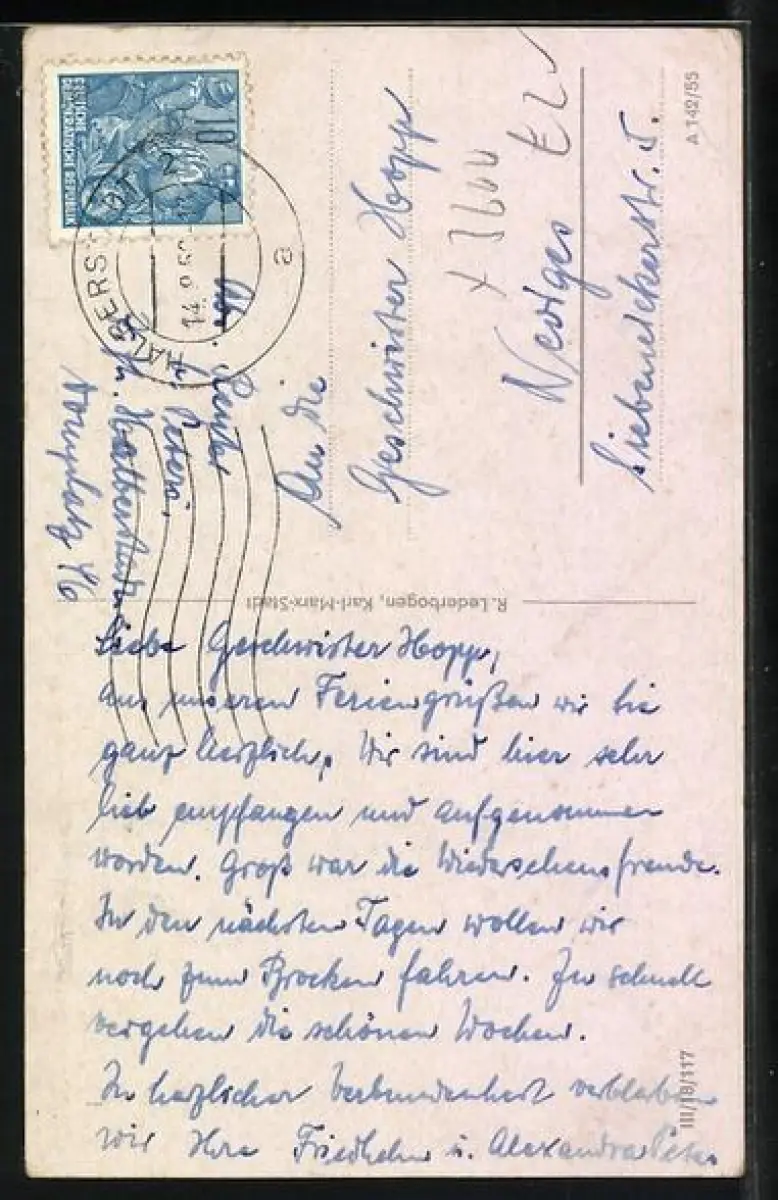 Liebe Geschwister Hopp,
aus unseren Ferien grüßen wir Sie
ganz herzlich. Wir sind hier sehr
lieb empfangen und aufgenommen
worden. Groß war die Wiedersehensfreude.
In den nächsten Tagen wollen wir
noch zum Brocken fahren. Zu schnell
vergehen die schönen Wochen.
In herzlicher Verbundenheit verbleiben
wir Ihre Friedhelm u. Alexandra Peters
An die
Geschwister Hopp
Neviges
Siebeneickerstr. 5.
Peters,
Halberstadt
Domplatz 46
DEUTSCHE
DEMOKRATISCHE REPUBLIK
10
HALBERSTADT 2
a
R. Lederbogen, Karl-Marx-Stadt
A 142/55
III/18/117